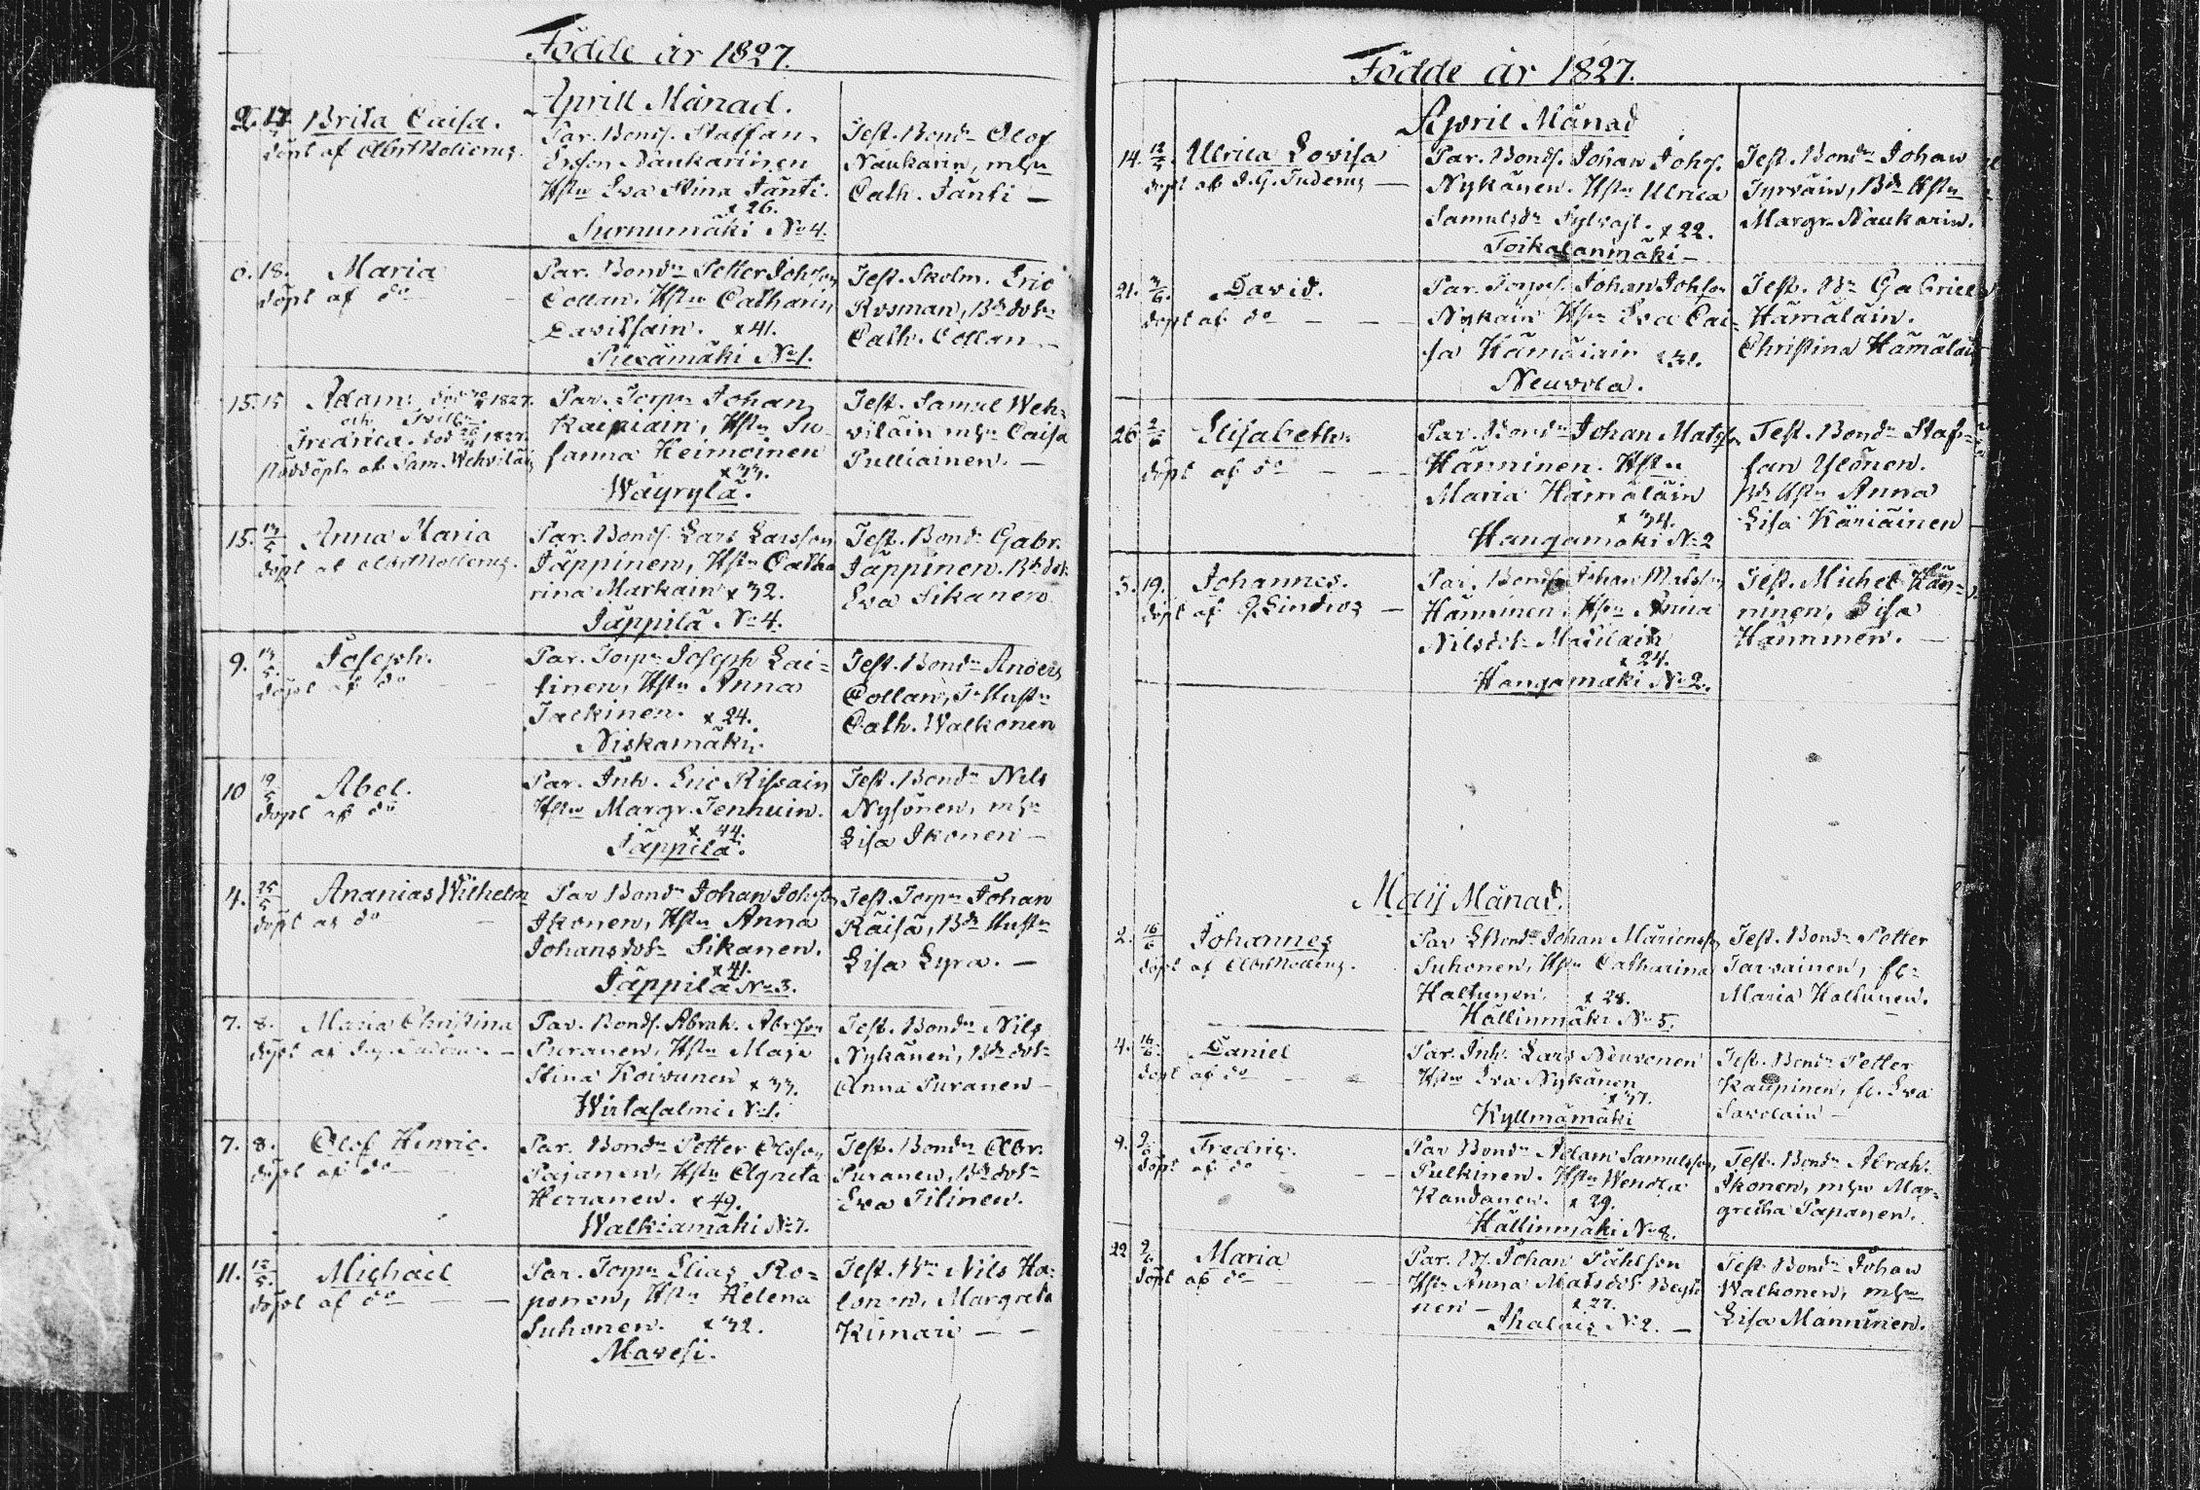 Födde år 1827.
Aprill Månad.
17 Brita Caisa.
döpt af
Par. Bonds. Staffan
Ersson Naukarinen
Hstu Eva Stina Jänti.
x 26.
Surnumäki No 4.
Test. Bondn Olof
Naukarin, mhu
Cath. Jänti —
6. 18. Maria
döpt af do
Par. Bondn Petter Johsson
Collan. Hstu Catharin
Davidsain. x 41.
Piexämäki No 1.
Test. Skolm. Eric
Rosman, Bd dotr
Cath. Collan —
15. 15 Adam. död 1827.
och Tvill.
Fredrica. död 1827.
Nöddöpt. af Sam. Wehviläin
Par. Torpn Johan
Kaipiain, Hstu Su-
sanna Heimoinen
x 33.
Wäyrylä.
Test. Samuel Weh-
viläin mhu Caisa
Pulliainen. —
15. 13/5 Anna Maria
döpt af
Par. Bonds. Lars Larsson
Jäppinen, Hstu Catha
rina Markain x 32.
Jäppilä No 4.
Test. Bondn Gabr.
Jäppinen. Bd dotr
Eva Sikanen
9. 13/5. Joseph.
döpt af do
Par. Torpn Joseph Lai-
tinen, Hstu Anna
Jackinen. x 24.
Niskamäki.
Test. Bondn Anders
Collan, T. Hustu
Cath. Walkonen
10 19/5 Abel.
döpt af do
Par. Inh. Eric Rissain
Hstu Margr. Tenhuin.
x 44.
Jäppilä.
Test. Bondn Nils
Nysönen, mhu
Lisa Ikonen —
4. 25/5 Ananias Wilhelm
döpt af do
Par Bondn Johan Johsson
Ikonen, Hstu Anna
Johansdotr Sikanen.
x 41.
Jäppilä No 3.
Test. Torpn Johan
Räisä, Bd Hustu
Lisa Lyra. —
7. 8. Maria Christina
döpt af
Par. Bonds. Abrah. Abrsson
Puranen, Hstu Maja
Stina Koivunen x 33.
Wirtasalmi No 1.
Test. Bondn Nils
Nykänen, Bd dotr
Anna Puranen —
7. 8. Olof Henric.
döpt af do
Par. Bondn Petter Olsson
Pajanen, Hstu Agneta
Herranen. x 49.
Walkiamäki No 7.
Test. Bondn Abr.
Puranen, Bd dotr
Eva Tilinen.
11. 12/5. Michael
döpt af do
Par. Torpn Elias Ro-
ponen, Hstu Helena
Suhonen. x 32.
Mavesi.
Test. Bdn Nils Ha-
lonen, Margreta
Kimari — —
Födde år 1827.
April Månad
14. 12/5. Ulrica Lovisa
döpt af
Par. Bonds. Johan Johss.
Nykänen. Hstu Ulrica
Samulsdr Sylvast. x 22.
Toikalanmäki —
Test. Bondn Johan
Tyrväin, Bd Hstu
Margr. Naukarin.
21. 3/6. David.
döpt af do
Par. Torps. Johan Johsson
Nykäin Hstu Eva Cai-
sa Hämäläin x 31.
Neuvola.
Test. Bdn Gabriel
Hämäläin.
Christina Hämäläin
26 2/6 Elisabeth.
döpt af do
Par. Bondn Johan Matsson
Hänninen. Hstu
Maria Hämäläin
x 34.
Hangamäki No 2
Test. Bondn Staf-
fan Ylönen.
Bd Hstu Anna
Lisa Käriäinen
3. 19. Johannes.
döpt af
Par. Bonds Johan Matsson
Hänninen, Hstu Anna
Nilsdtr
x 24.
Hangamäki No 2.
Test. Michel Hän-
ninen, Lisa
Hänninen. —
Maij Månad.
2. 16/6 Johannes
döpt af
Par Bonds Johan
Suhonen, Hstu Catharina
Haltunen. x 28.
Hällinmäki No 5.
Test. Bondn Petter
Tarvainen, fl.
Maria Haltunen.
4. 16/6. Daniel
döpt af do
Par. Inh. Lars Neuvonen
Hstu Eva Nykänen
x 37.
Kyllmämäki
Test. Bondn Petter
Kaupinen, fl. Eva
Savolain —
9. 9/6 Fredric.
döpt af do
Par Bondn Adam Samulsson
Pulkinen. Hstu Wendla
Kandanen. x 29.
Hällinmäki No 2.
Test. Bondn Abrah.
Ikonen, mhu Mar-
gretha Papanen.
22 9/6 Maria
döpt af do
Par. Bs. Johan Påhlsson
Hstu Anna Matsdotr
nen — x 27.
No 2. —
Test. Bondn Johan
Walkonen, mhu
Lisa Männinen.